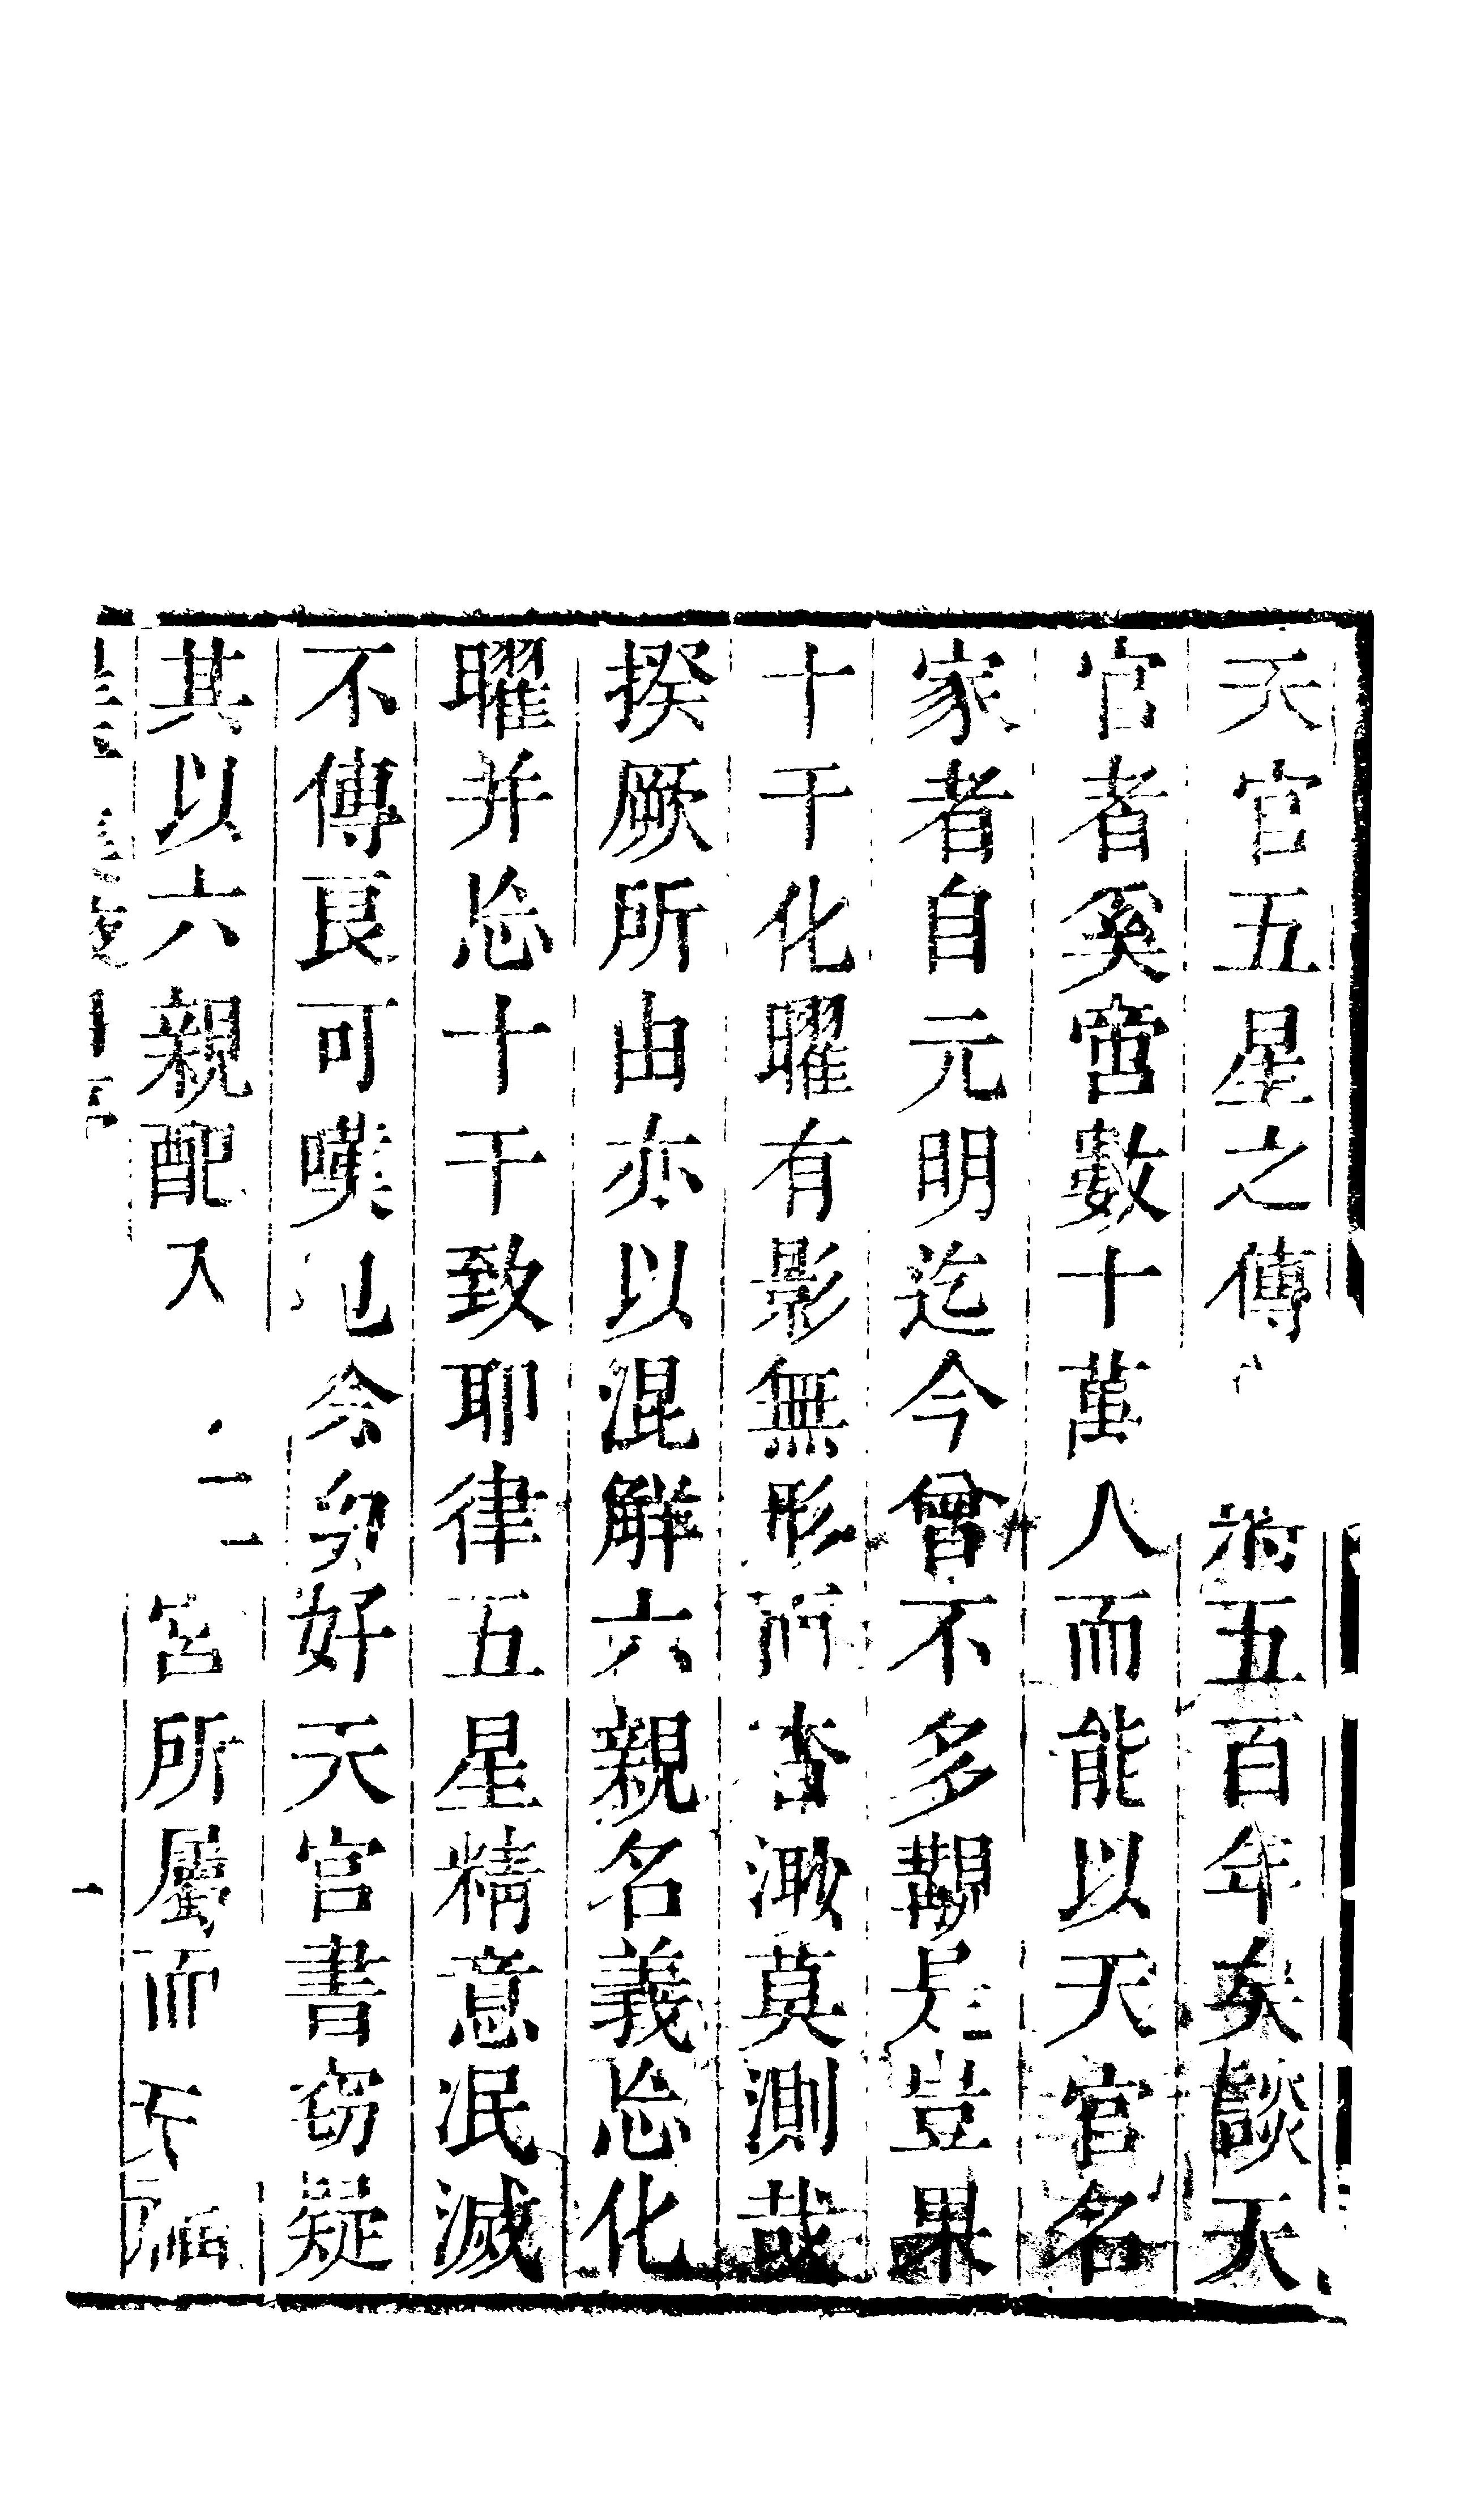 天官五星之傳五百年矣談天
官者奚啻數十萬人而能以天官名
家者自元明迄今曾不多覯是豈果
十干化曜有影無形而杳渺莫測哉
揆厥所由亦以混解六親名義忘化
曜并忘十干致耶律五星精意泯滅
不傳良可嘆也余幼好天官書窃疑
其以六親配入宮所屬而不